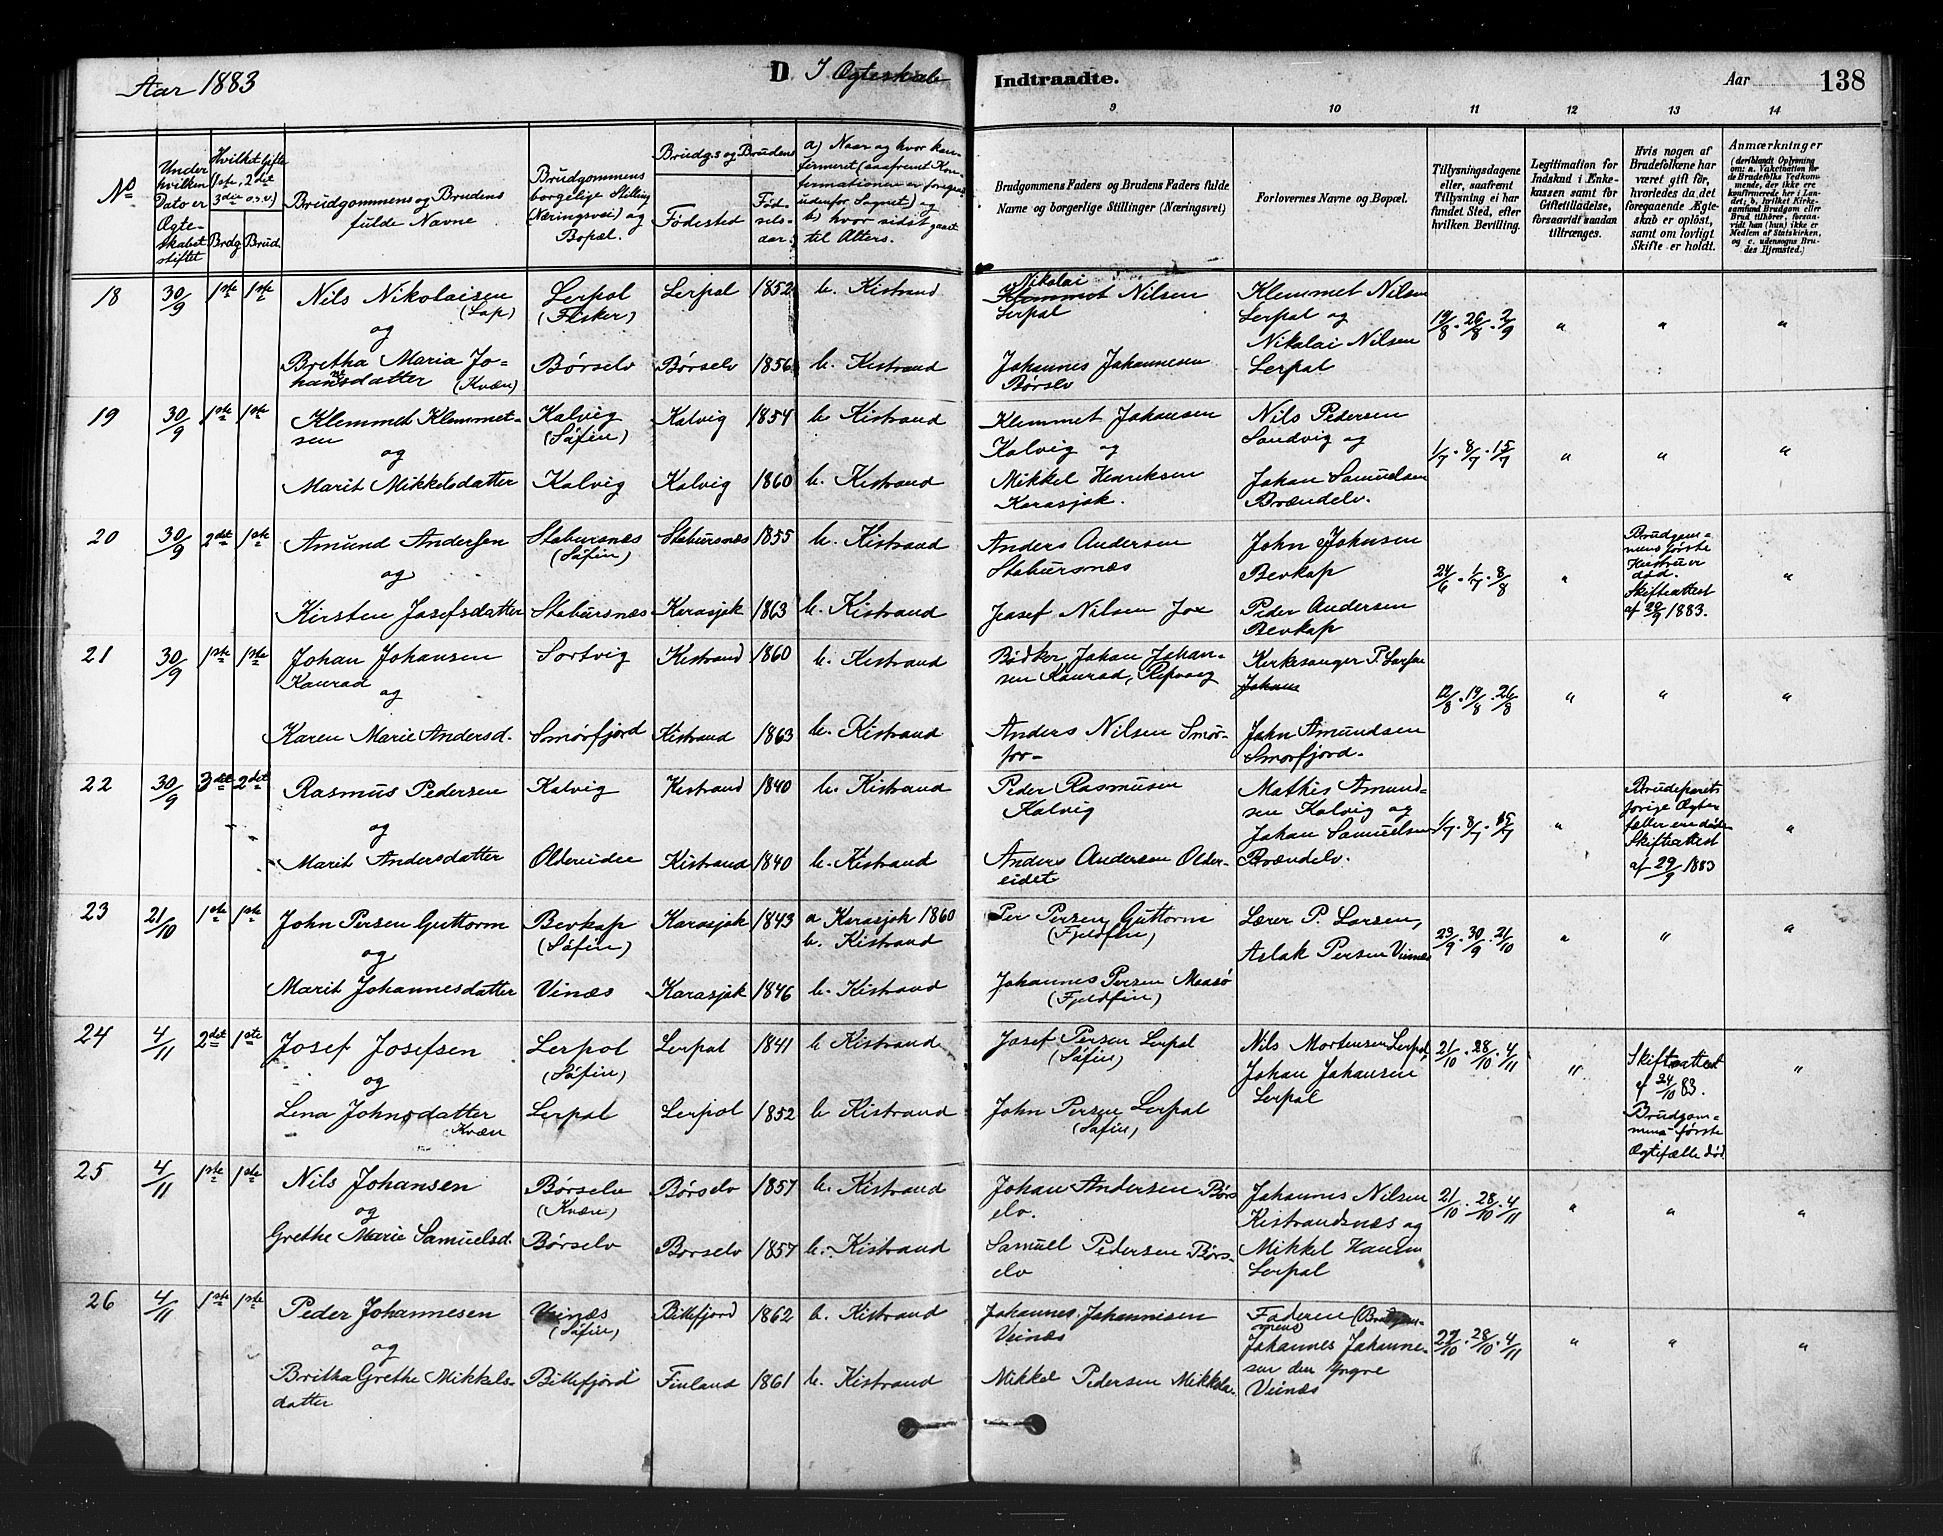 Aar 1883 D I Ægteskab Indtraadte. Aar 138
9 10 11 12 13 14
No
Under hvilken Dato er Ægteskabet stiftet
Hvilket Gifte 1ste, 2det 3die o.s.v)
Brdg. Brud.
Brudgommens og Brudens fulde Navne
Brudgommens borgelige Stilling (Næringsvei) og Bopæl.
Brudg.s og Brudens
Fødested
Fødselsaar.
a) Naar og hvor konfirmeret (saafremt Konfirmationen er foregaaet udenfor Sognet) og b) hvor sidst gaaet til Alters.
Brudgommens Faders og Brudens Faders fulde Navne og borgerlige Stillinger (Næringsvei)
Forlovernes Navne og Bopæl.
Tillysningsdagene eller, saafremt Tillysning ei har fundet Sted, efter hvilken Bevilling.
Legitimation for Indskud i Ænkekassen samt for Giftetilladelse, forsaavidt saadan tiltrænges.
Hvis nogen af Brudefolkene har været gift før, hvorledes da det foregaaende Ægteskab er opløst, samt om lovligt Skifte er holdt.
Anmærkninger (deriblandt Oplysning om: a. Vakcination for de Brudefolks Vedkommende, der ikke ere konfirmerede her i Landet; b. hvilket Kirkesamfund Brudgom eller Brud tilhører, forsaavidt han (hun) ikke er Medlem af Statskirken, og c. udensogns Brudes Hjemsted.)
18 30/9 1ste 1ste Nils Nikolaisen (Lap) Lerpol (Fisker) Lerpol 1852 b. Kistrand Nikolai Klemmet Nilsen Lerpol Klemmet Nilsen Lerpol og Nikolai Nilsen Lerpol 19/8 . 26/8 . 2/9 " " "
og
Bretha Maria Johannesdatter (Kvæn) Børselv Børselv 1856 b. Kistrand Johannes Johannesen Børselv
19 30/9 1ste 1ste Klemmet Klemmetsen Kolvig (Søfin) Kolvig 1854 b. Kistrand Klemmet Johansen Kolvig og Nils Pedersen Sandvig og 1/7 . 8/7 . 15/7 " " "
og
Marit Mikkelsdatter Kolvig Kolvig 1860 b. Kistrand Mikkel Henriksen Karasjok. Johan Samuelsen Brændelv.
20 30/9 2det 1ste Amund Andersen Stabursnæs (Søfin) Stabursnæs 1855 b. Kistrand Anders Andersen Stabursnæs John Johnsen Bevkap 24/6 . 1/7 . 8/8 " Brudgommens første Hustru er død. Skifteattest af 29/9 1883. "
og
Kirsten Josefsdatter Stabursnæs Karasjok 1863 b. Kistrand Josef Nilsen Jox Peder Andersen Bevkap
21 30/9 1ste 1ste Johan Johansen Konrad Sortvig Kistrand 1860 b. Kistrand Bødker Johan Johansen Konrad, Repvaag Kirkesanger P. Larsen Johan 12/8 . 19/8 . 26/8 " " "
og
Karen Marie Andersd. Smørfjord Kistrand 1863 b. Kistrand Anders Nilsen Smørfjor- John Amundsen Smørfjord.
22 30/9 3det 2det Rasmus Pedersen Kolvig Kistrand 1840 b. Kistrand Peder Rasmusen Kolvig Mathis Amundsen Kolvig og Johan Samuelsen Brændelv. 1/7 . 8/7 . 15/7 " Brudeparets forige Ægtefæller ere døde Skifteattest af 29/9 1883 "
og
Marit Andersdatter Oldereidet Kistrand 1840 b. Kistrand Anders Andersen Oldereidet
23 21/10 1ste 1ste John Persen Guttorm Bevkap (Søfin) Karasjok 1843 a Karasjok 1860 b. Kistrand Per Persen Guttorm (Fjeldfin) Lærer P. Larsen, Aslak Persen Viinæs 23/9 . 30/9 . 21/10 " " "
og
Marit Johannesdatter Vinæs Karasjok 1846 b. Kistrand Johannes Persen Maasø (Fjeldfin)
24 4/11 2det 1ste Josef Josefsen Lerpol (Søfin) Lerpol 1841 b Kistrand Josef Persen Lerpol (Søfin) Nils Mortensen Lerpol, Johan Johansen Lerpol 21/10 . 28/10 . 4/11 " Skifteattest af 24/10 83. Brudgommens første Ægtefælle død "
og
Lena Johnsdatter Kvæn Lerpol Lerpol 1852 b Kistrand John Persen Lerpol (Søfin)
25 4/11 1ste 1ste Nils Johansen Børselv (Kvæn) Børselv 1857 b. Kistrand Johan Andersen Børselv. Johannes Nilsen Kistrandsnæs og Mikkel Hansen Lerpol 21/10 . 28/10 . 4/11 " " "
og
Grethe Marie Samuelsd. Børselv Børselv 1857 b. Kistrand Samuel Pedersen Børselv
26 4/11 1ste 1ste Peder Johannesen Veinæs (Søfin) Billefjord 1862 b. Kistrand Johannes Johannesen Veinæs Faderen (Brudgommens) Johannes Johannesen den Yngre Veinæs 27/10 . 28/10 . 4/11 " " "
og
Britha Grethe Mikkelsdatter Billefjord Finland 1861 b. Kistrand Mikkel Pedersen Mikkola